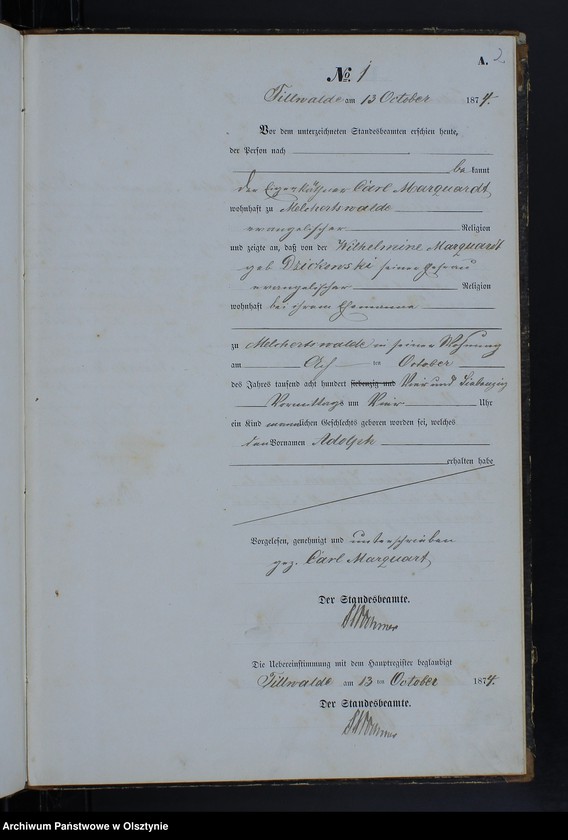 A. 2
No. 1
Tillwalde am 13 October 1874.
Vor dem unterzeichneten Standesbeamten erschien heute,
der Person nach
be kannt
der Eigenkäthner Carl Marquardt
wohnhaft zu Melchertswalde
evangelischer Religion
und zeigte an, daß von der Wilhelmine Marquardt
geb Dzickowski seiner Ehefrau
evangelischer Religion
wohnhaft bei ihrem Ehemanne
zu Melchertswalde in seiner Wohnung
am Acht ten October
des Jahres tausend acht hundert siebenzig und Vier und Siebenzig
Vormittags um Vier Uhr
ein Kind männlichen Geschlechts geboren worden sei, welches
den Vornamen Adolph
erhalten habe
Vorgelesen, genehmigt und unterschrieben
gez. Carl Marquart
Der Standesbeamte.
Die Uebereinstimmung mit dem Hauptregister beglaubigt
Tillwalde am 13 ten October 1874.
Der Standesbeamte.
Archiwum Państwowe w Olsztynie